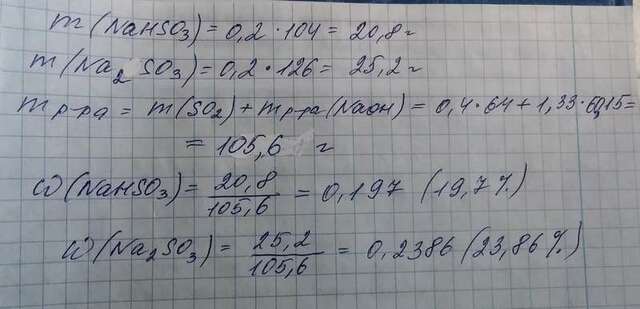 m(NaHSO₃) = 0,2 · 104 = 20,8 г
m(Na₂SO₃) = 0,2 · 126 = 25,2 г
m р-ра = m(SO₂) + m р-ра (NaOH) = 0,4 · 64 + 1,33 · 60,15 =
= 105,6 г
ω(NaHSO₃) = 20,8 / 105,6 = 0,197 (19,7 %)
ω(Na₂SO₃) = 25,2 / 105,6 = 0,2386 (23,86 %)